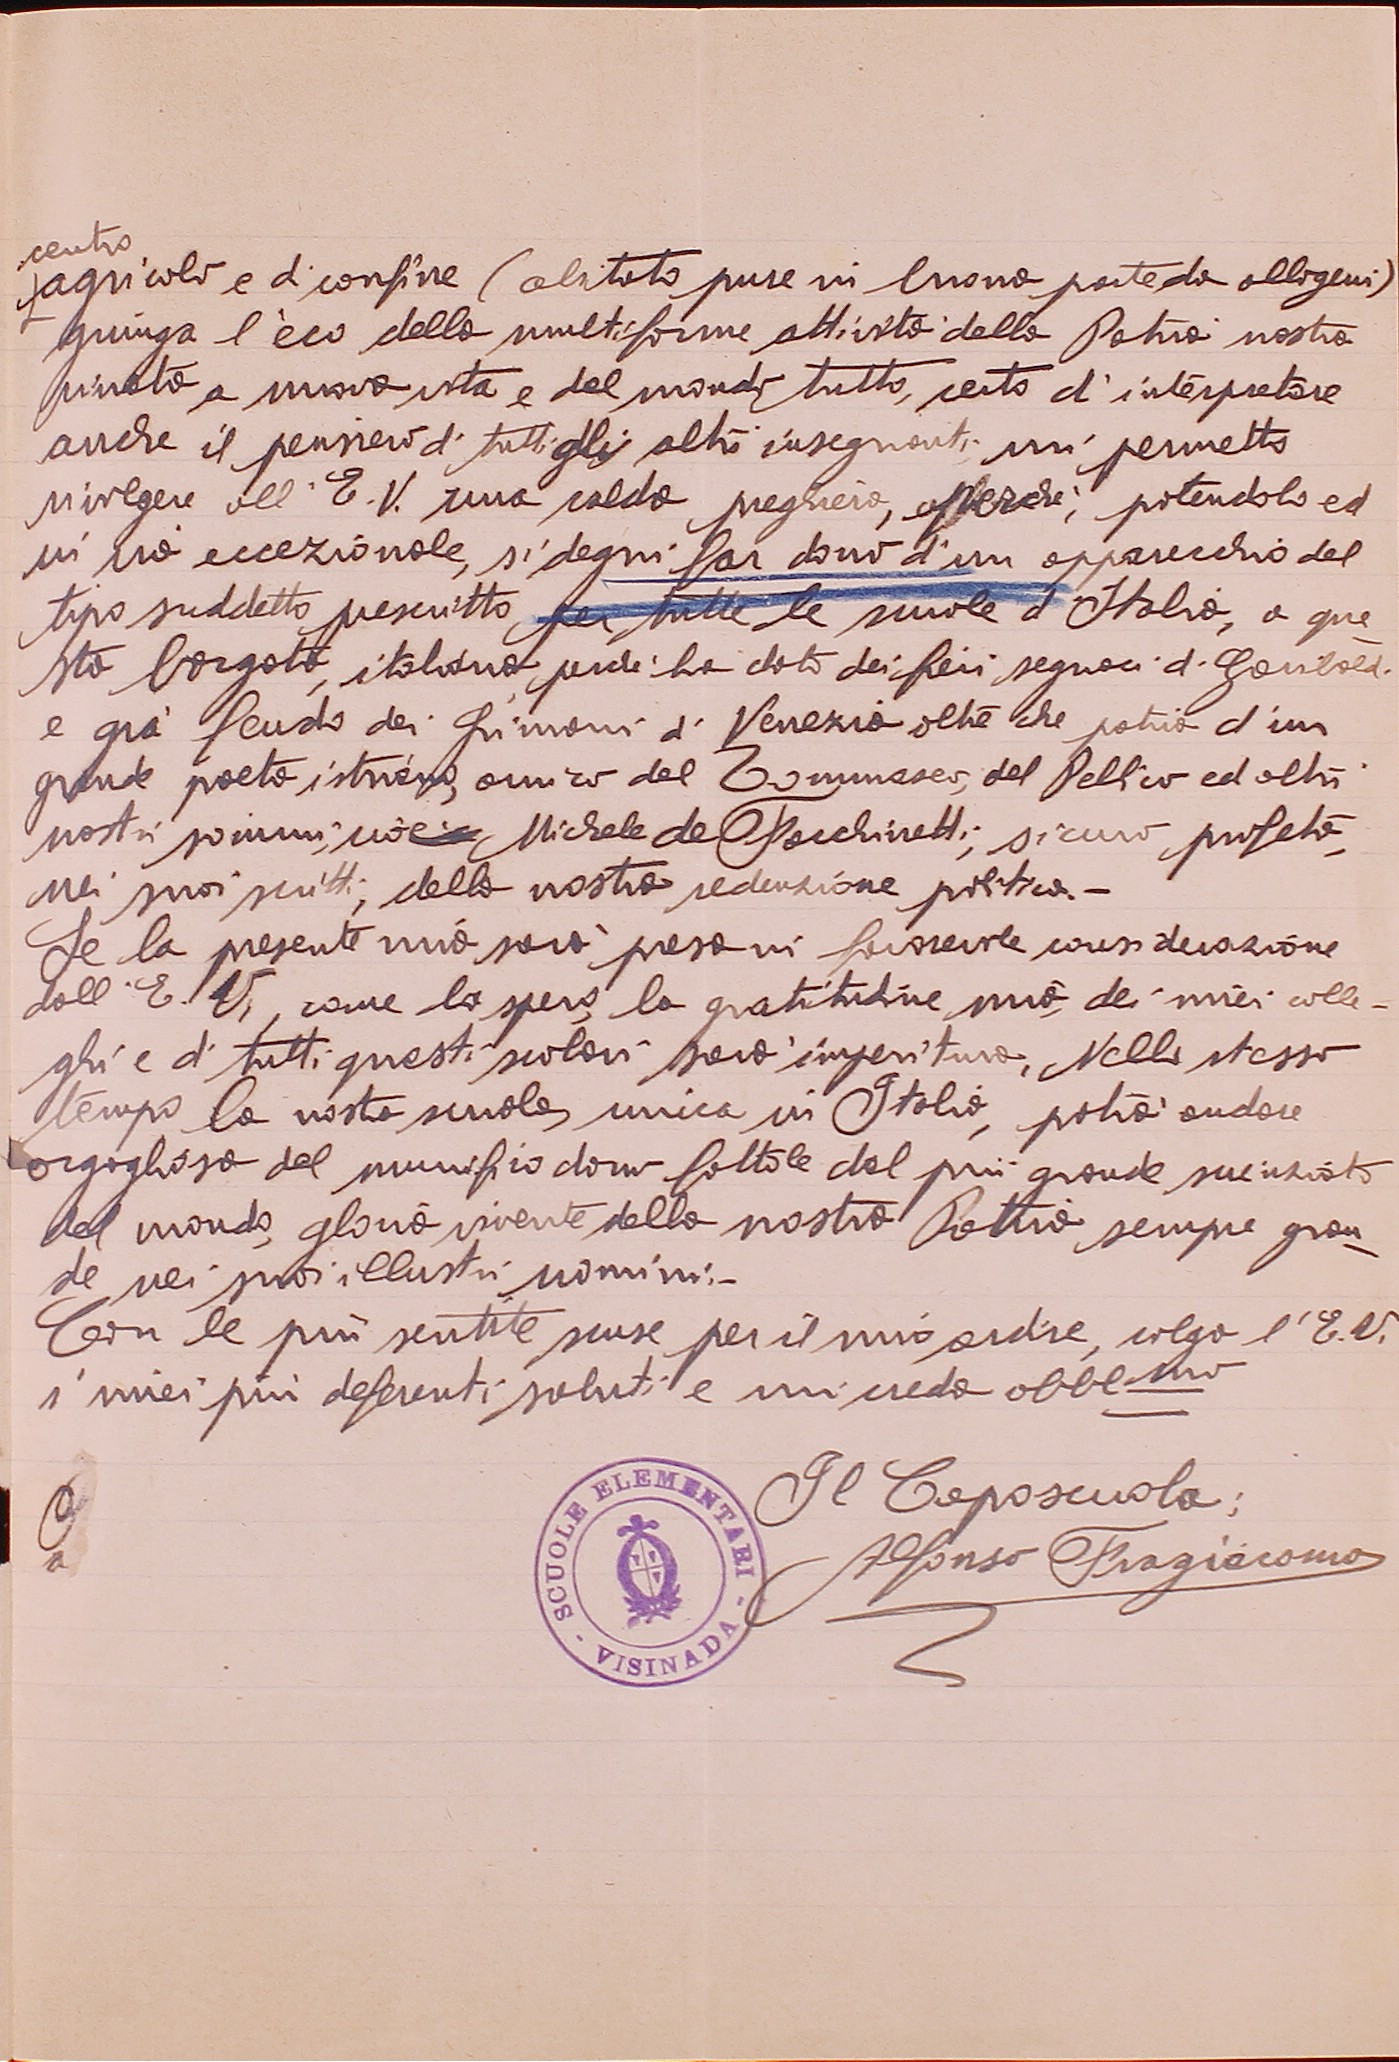 centro
agricolo e di confine (abitato pure in buona parte da allogeni)
giunga l'èco della multiforme attività della Patria nostra
rinata a nuova vita e del mondo tutto, certo d'interpretare
anche il pensiero di tutti gli altri insegnanti, mi permetto
rivolgere all'E.V. una calda preghiera, affinché, potendolo ed
in via eccezionale, si degni far dono d'un apparecchio del
tipo suddetto prescritto per tutte le scuole d'Italia, a que
sta borgata, italiana, perché ha dato dei fieri seguaci di Garibaldi
e già feudo dei Grimani di Venezia oltre che patria d'un
grande poeta istriano, amico del Tommaseo, del Pellico ed altri
nostri sommi, cioè Michele de Facchinetti, sicuro profeta,
nei suoi scritti, della nostra redenzione politica.-
Se la presente mia sarà presa in favorevole considerazione
dall'E.V., come lo spero, la gratitudine mia, dei miei colle-
ghi e di tutti questi scolari sarà imperitura. Nello stesso
tempo la nostra scuola, unica in Italia, potrà andare
orgogliosa del munifico dono fattole dal più grande scienziato
del mondo, gloria vivente della nostra Patria sempre gran-
de nei suoi illustri uomini.-
Con le più sentite scuse per il mio ardire, colgo l'E.V.
i miei più deferenti saluti e mi creda obbl.mo
Il Caposcuola:
Alfonso Fragiacomo
SCUOLE ELEMENTARI
- VISINADA -